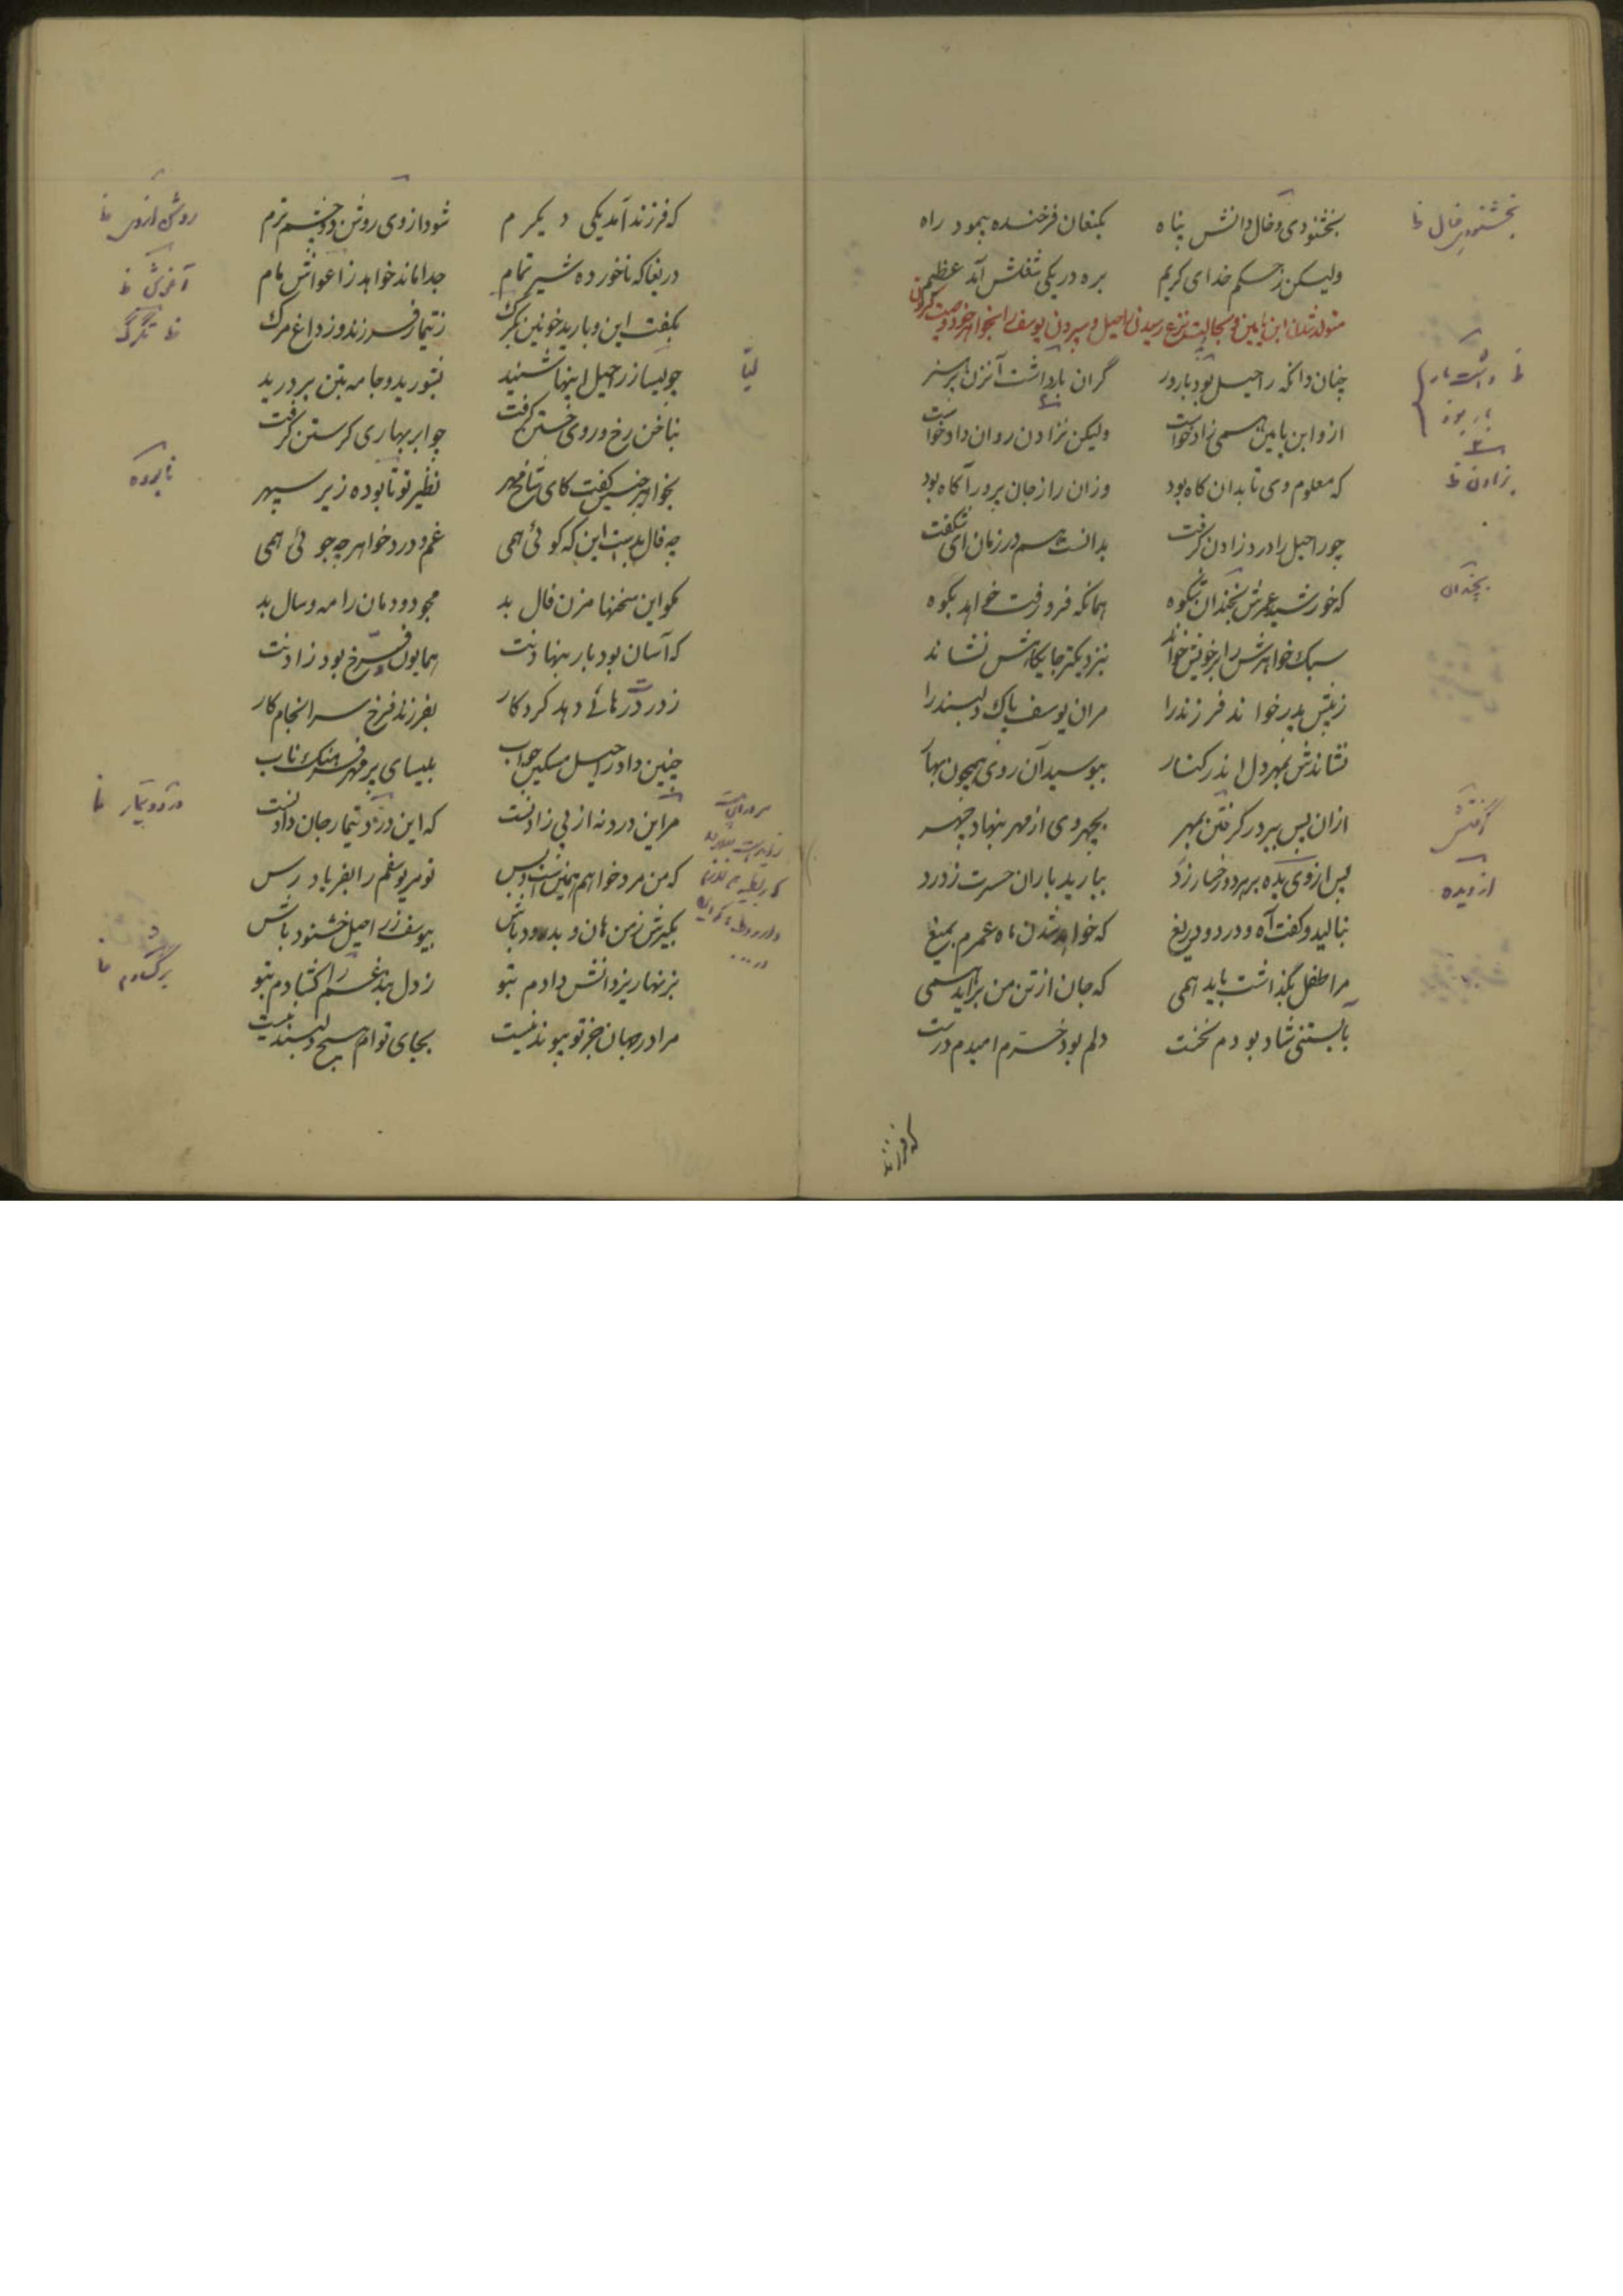 بخشنودی و فال دانش پناه بکنعان فرخنده پیمود راه
ولیکن ز حکم خدای کریم بره در یکی شغلش آمد عظیم
متولد شدن ابن یامین و بحالت نزع رسیدن راحیل و سپردن یوسف را بخواهر خود و وصیت کردن
چنان دانکه راحیل بود بارور گران بار داشت آنزن بسر
ازو ابن یامین همی زاد خواست ولیکن بزادن روان داد خواست
که معلوم وی تا بدان گاه بود وزان راز جان پرور آگاه بود
چو راحیل را درد زادن گرفت بدانست هم در زمان ای شگفت
که خورشید عمرش بخندان شکوه همانگه فرو رفت خواهد بکوه
سبک خواهرش را بر خویش خواند بنزدیکتر جایگاهش نشاند
ز پیش پدر خواند فرزند را مران یوسف پاک دلبند را
نشاندش بمهر دل اندر کنار ببوسید آن روی همچون بهار
ازان پس ببر در گرفتن بمهر بچهر وی از مهر بنهاد چهر
پس از وی بده بر مه دو رخسار زرد ببارید باران حسرت ز درد
بنالید و گفت آه و درد و دریغ که خواهد شدن ماه عمرم بمیغ
مرا طفل بگذاشت باید همی که جان از تن من برآید همی
بآبستنی شاد بودم نخست دلم بود خرم امیدم درست
که فرزند
بخشنودی فال
بار بود
بزادن ظ
بخندان
گرفتش
از دیده
که فرزند آمد یکی دیگرم شود از وی روشن دو چشم ترم
دریغا که ناخورده شیر تمام جدا ماند خواهد ز آغوش مام
بگفت این و بارید خونین تگرگ ز تیمار فرزند وز داغ مرگ
چو لیسا ز راحیل اینها شنید بشورید و جامه بتن بر درید
بناخن رخ و روی خستن گرفت چو ابر بهاری گرستن گرفت
بخواهر چنین گفت کای شاخ مهر نظیر تو نابوده زیر سپهر
چه فال بدست این که گوئی همی غم و درد خواهر چه جوئی همی
مگو این سخنها مزن فال بد مجو دودمان را مه و سال بد
که آسان بود بار بنهادنت همایون و فرخ بود زادنت
ز درد رهائی دهد کردگار بفرزند فرخ سرانجام کار
چنین داد راحیل مسکین جواب بلیسای پر مهر فرهنگ ناب
مر این درد نه از پی زادنست که این درد و تیمار جان دادنست
که من مرد خواهم همینست و بس تو مر یوسفم را بفریاد رس
بگیرش ز من هان و بدرود باش بیوسف ز راحیل خشنود باش
بزنهار یزدانش دادم بتو ز دل بند غم را گشادم بتو
مرا در جهان جز تو پیوند نیست بجای توام هیچ دلبند نیست
لیّا
آغوش ظ
ظ تگرگ
نابوده
درد و تیمار